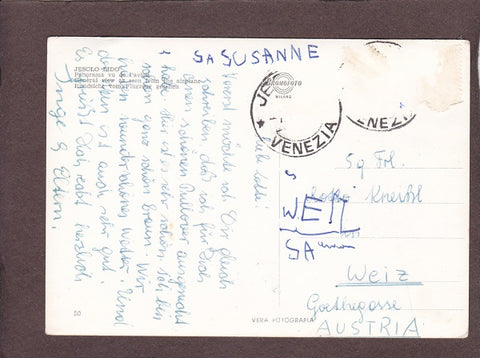 JESOLO LIDO
Panorama vu de l'avion
General view as seen from the airplane
Rundsicht vom Flugzeug gesehen
SA SUSANNE
PROMOFOTO
MILANO
JE
VENEZIA
VENEZIA
Liebe Lotti!
Vorerst möchte ich Dir gleich
schreiben, daß ich für Dich
einen schönen Pullover ausgesucht
habe. Hier ist es sehr schön. Ich bin
schon ganz schön braun. Wir
haben wunderschönes Wetter. Und
das Essen ist auch sehr gut.
Es grüßt Dich recht herzlich
Inge & Eltern.
Sg Frl.
Lotti
WEIL
SA
Weiz
Goethegasse
AUSTRIA
50
VERA FOTOGRAFIA